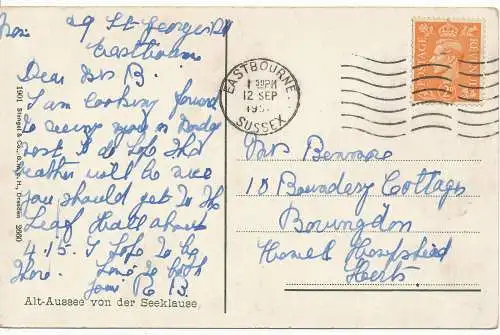 29 St Georges Rd
Eastbourne
Dear Mrs B.
I am looking forward
to seeing you on
next I do hope the
weather will be nice
you should get to the
Leaf Hall about
4.15. I hope to be
there. Love to both
from R B.
Alt-Aussee von der Seeklause
1901 Stengel & Co., G.m.b.H., Dresden
EASTBOURNE
PM
12 SEP
195
SUSSEX
POSTAGE
REVENUE
Mrs Benmore
10 Boundary Cottages
Bovingdon
Hemel Hempstead
Herts